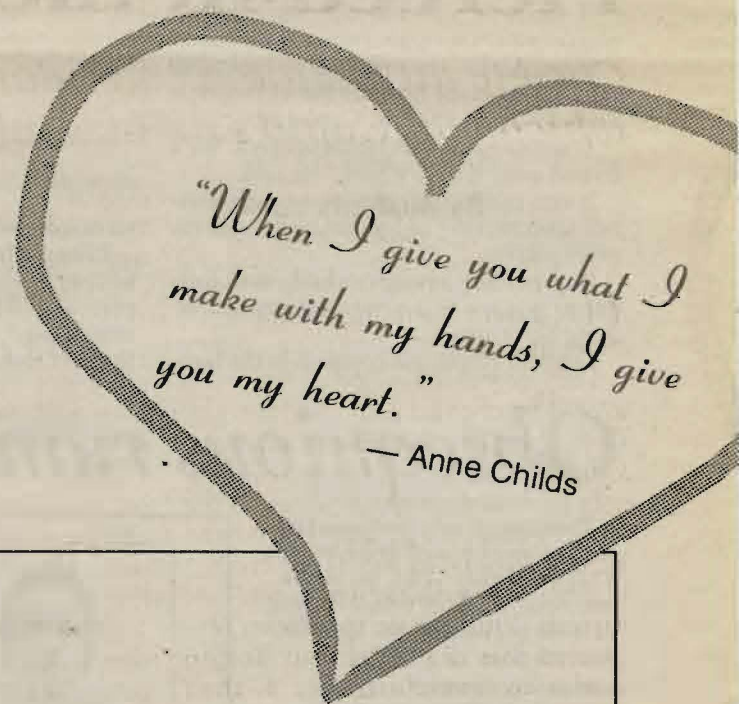 “When I give you what I
make with my hands, I give
you my heart.”
— Anne Childs